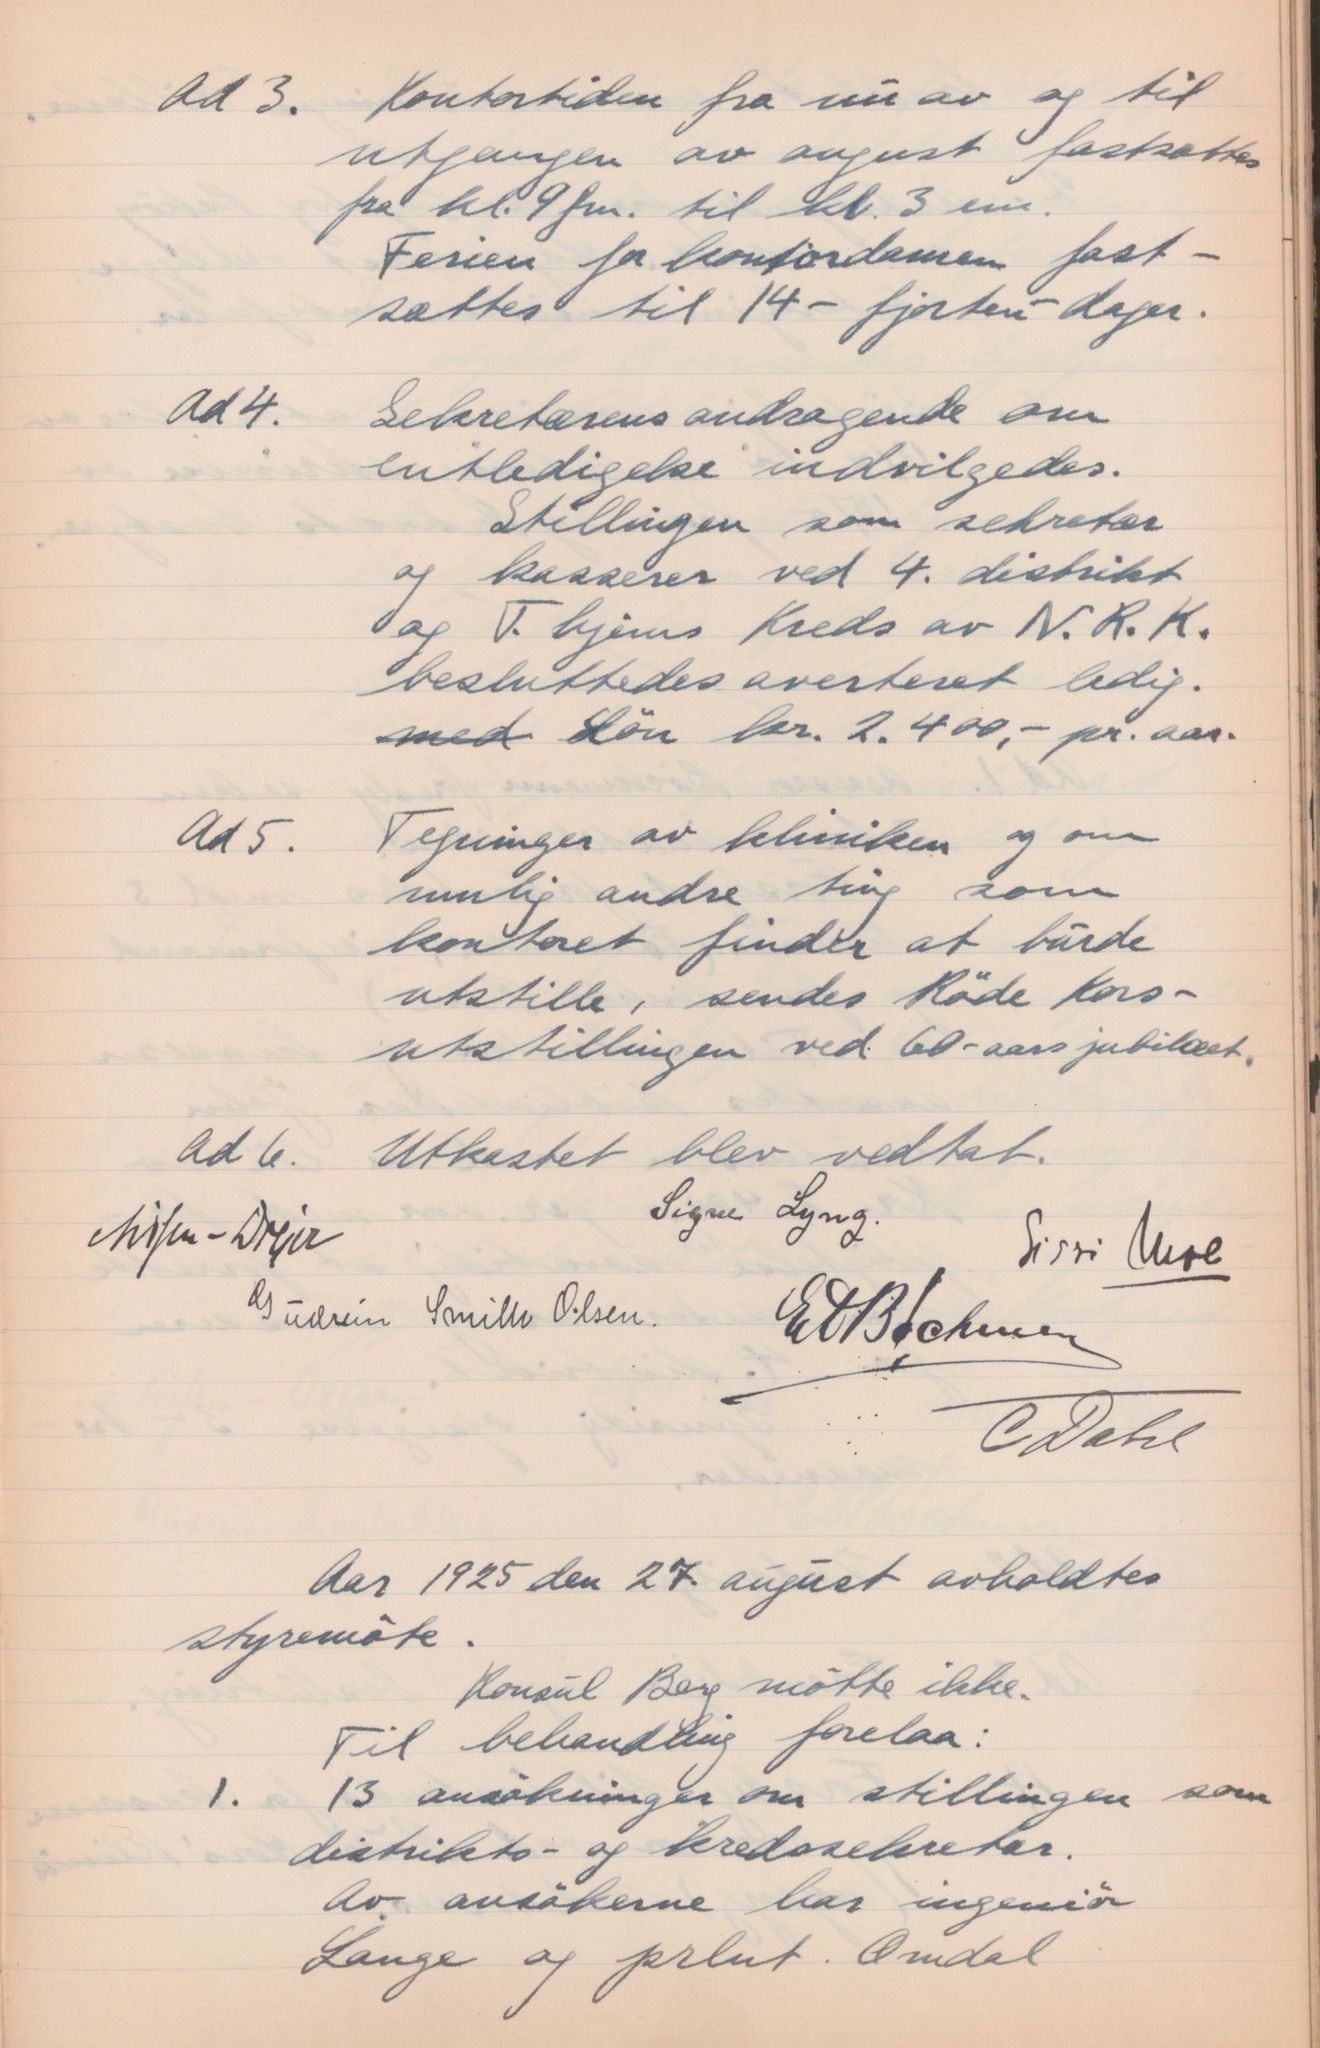 Ad 3. Kontortiden fra nu av og til
utgangen av august fastsættes
fra kl. 9 fm. til kl. 3 em.
Ferien for kontordamen fast-
sættes til 14 - fjorten - dager.
Ad 4. Sekretærens andragende om
entledigelse indvilgedes.
Stillingen som sekretær
og kasserer ved 4. distrikt
og T.hjems Kreds av N. R. K.
besluttedes averteret ledig.
med Lön kr. 2.400,- pr. aar.
Ad 5. Tegninger av kliniken og om
mulig andre ting som
kontoret finder at burde
utstille, sendes Röde Kors-
utstillingen ved 60-aars jubilæet.
Ad 6. Utkastet blev vedtat.
Signe Lyng.
Sissi
Gudrun Smith Olsen.
C Dahl
Aar 1925 den 27. august avholdtes
styremöte.
Konsul Berg mötte ikke.
Til behandling forelaa:
1. 13 ansökninger om stillingen som
distrikts- og kredssekretær.
Av ansökerne har ingeniör
Lange og prlnt. Omdal